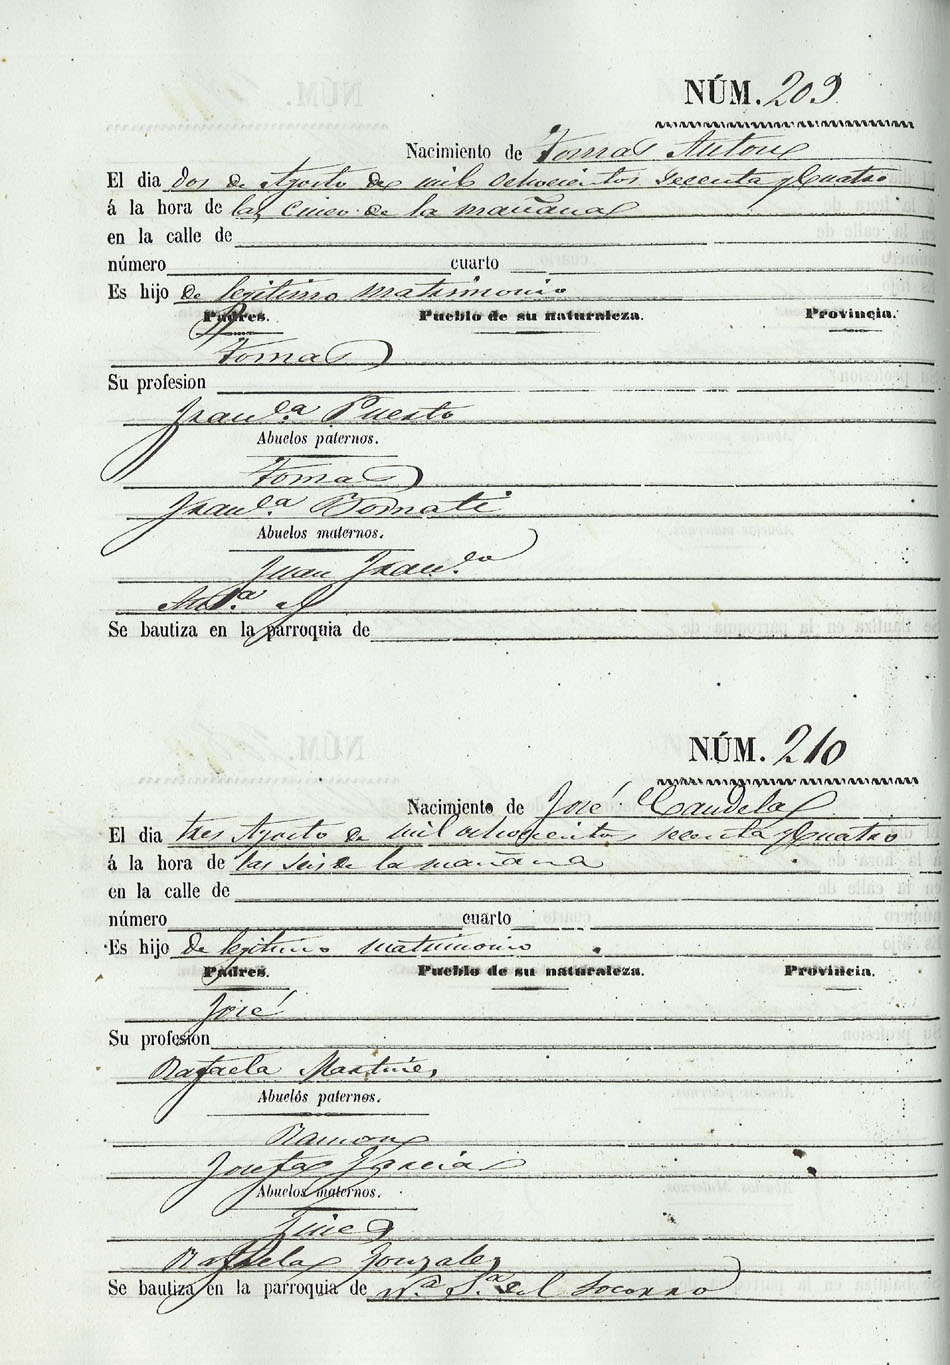 NÚM. 209
Nacimiento de Tomas Anton
El dia dos de Agosto de mil ochocientos secenta y Cuatro
á la hora de las cinco de la mañana
en la calle de
número cuarto
Es hijo de legitimo matrimonio
Padres. Pueblo de su naturaleza. Provincia.
Tomas
Su profesion
Fran.ca Puerto
Abuelos paternos.
Tomas
Fran.ca Bernati
Abuelos maternos.
Juan Fran.co
Se bautiza en la parroquia de
NÚM. 210
Nacimiento de José Candela
El dia tres Agosto de mil ochocientos secenta y Cuatro
á la hora de las seis de la mañana
en la calle de
número cuarto
Es hijo de legitimo matrimonio
Padres. Pueblo de su naturaleza. Provincia.
José
Su profesion
Rafaela Martines
Abuelos paternos.
Ramon
Josefa Garcia
Abuelos maternos.
Gines
Rafaela Gonzalez
Se bautiza en la parroquia de N.a S.a del Socorro